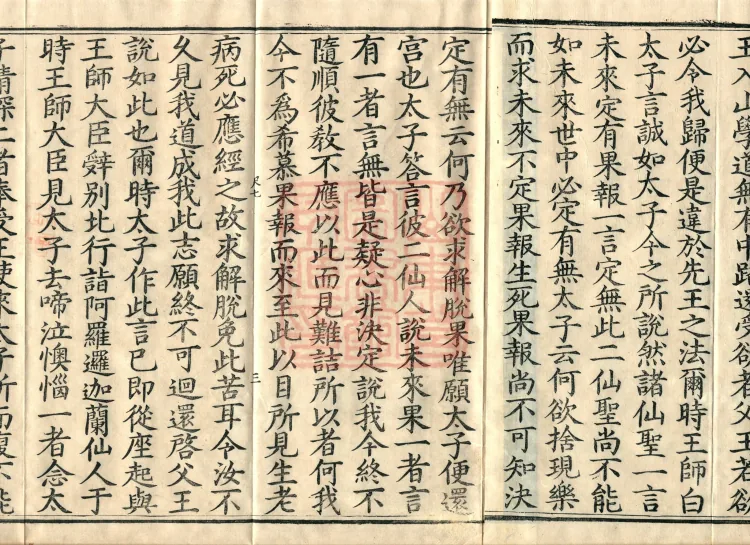 王入山學道無有中路還宮欲者父王若欲
必令我歸便是違於先王之法爾時王師白
太子言誠如太子今之所說然諸仙聖一言
未來定有果報一言定無此二仙聖尚不能
如未來世中必定有無太子云何欲捨現樂
而求未來不定果報生死果報尚不可知決
定有無云何乃欲求解脫果唯願太子便還
宮也太子答言彼二仙人說未來果一者言
有一者言無皆是疑心非決定說我今終不
隨順彼教不應以此而見難詰所以者何我
今不爲希慕果報而來至此以目所見生老
尺七 三
病死必應經之故求解脫免此苦耳令汝不
久見我道成我此志願終不可迴還啓父王
說如此也爾時太子作此言已即從座起與
王師大臣辭別北行詣阿羅邏迦蘭仙人于
時王師大臣見太子去啼泣懊惱一者念太
子情深二者奉受王使來太子所而復不能